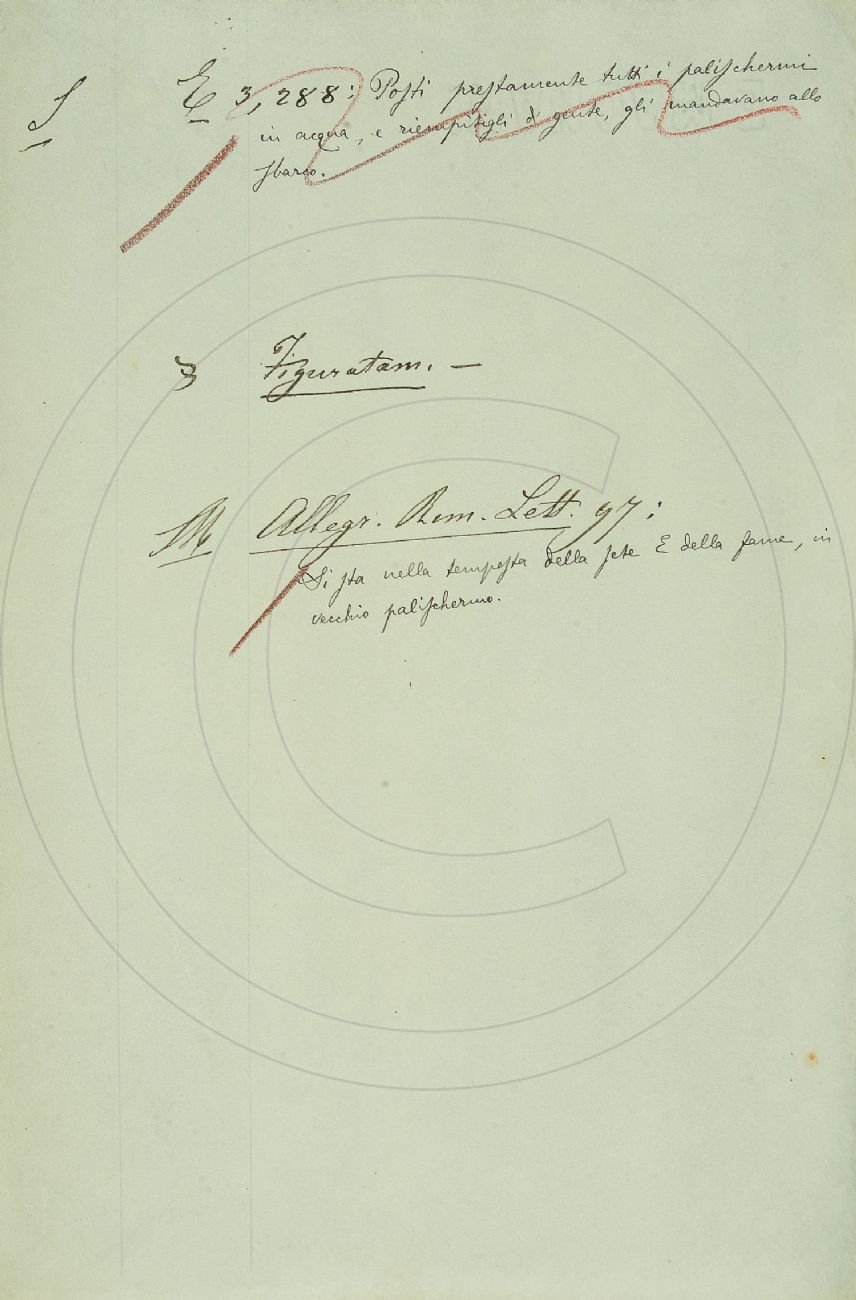 S E 3, 288: Posti prestamente tutti i palischermi
in acqua, e riempitigli di gente, gli mandavano allo
sbarco.
§ Figuratam. —
M Allegr. Rim. Lett. 97:
Si sta nella tempesta della sete E della fame, in
vecchio palischermo.